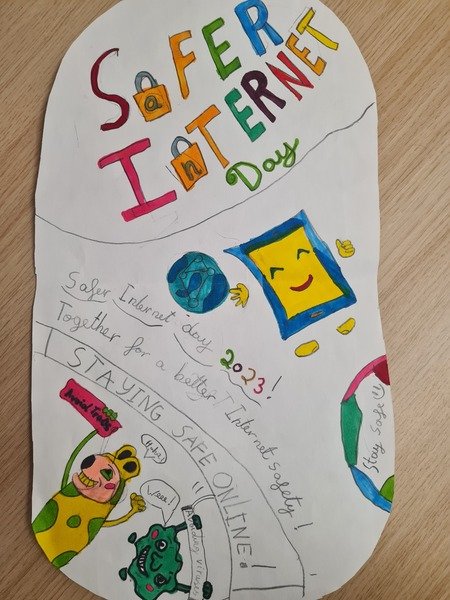 SaFER
InTERNET
Day
Safer Internet day 2023!
Together for a better Internet safety!
STAYING SAFE ONLINE!
Avoid Trolls
Haha!
Stay Safe